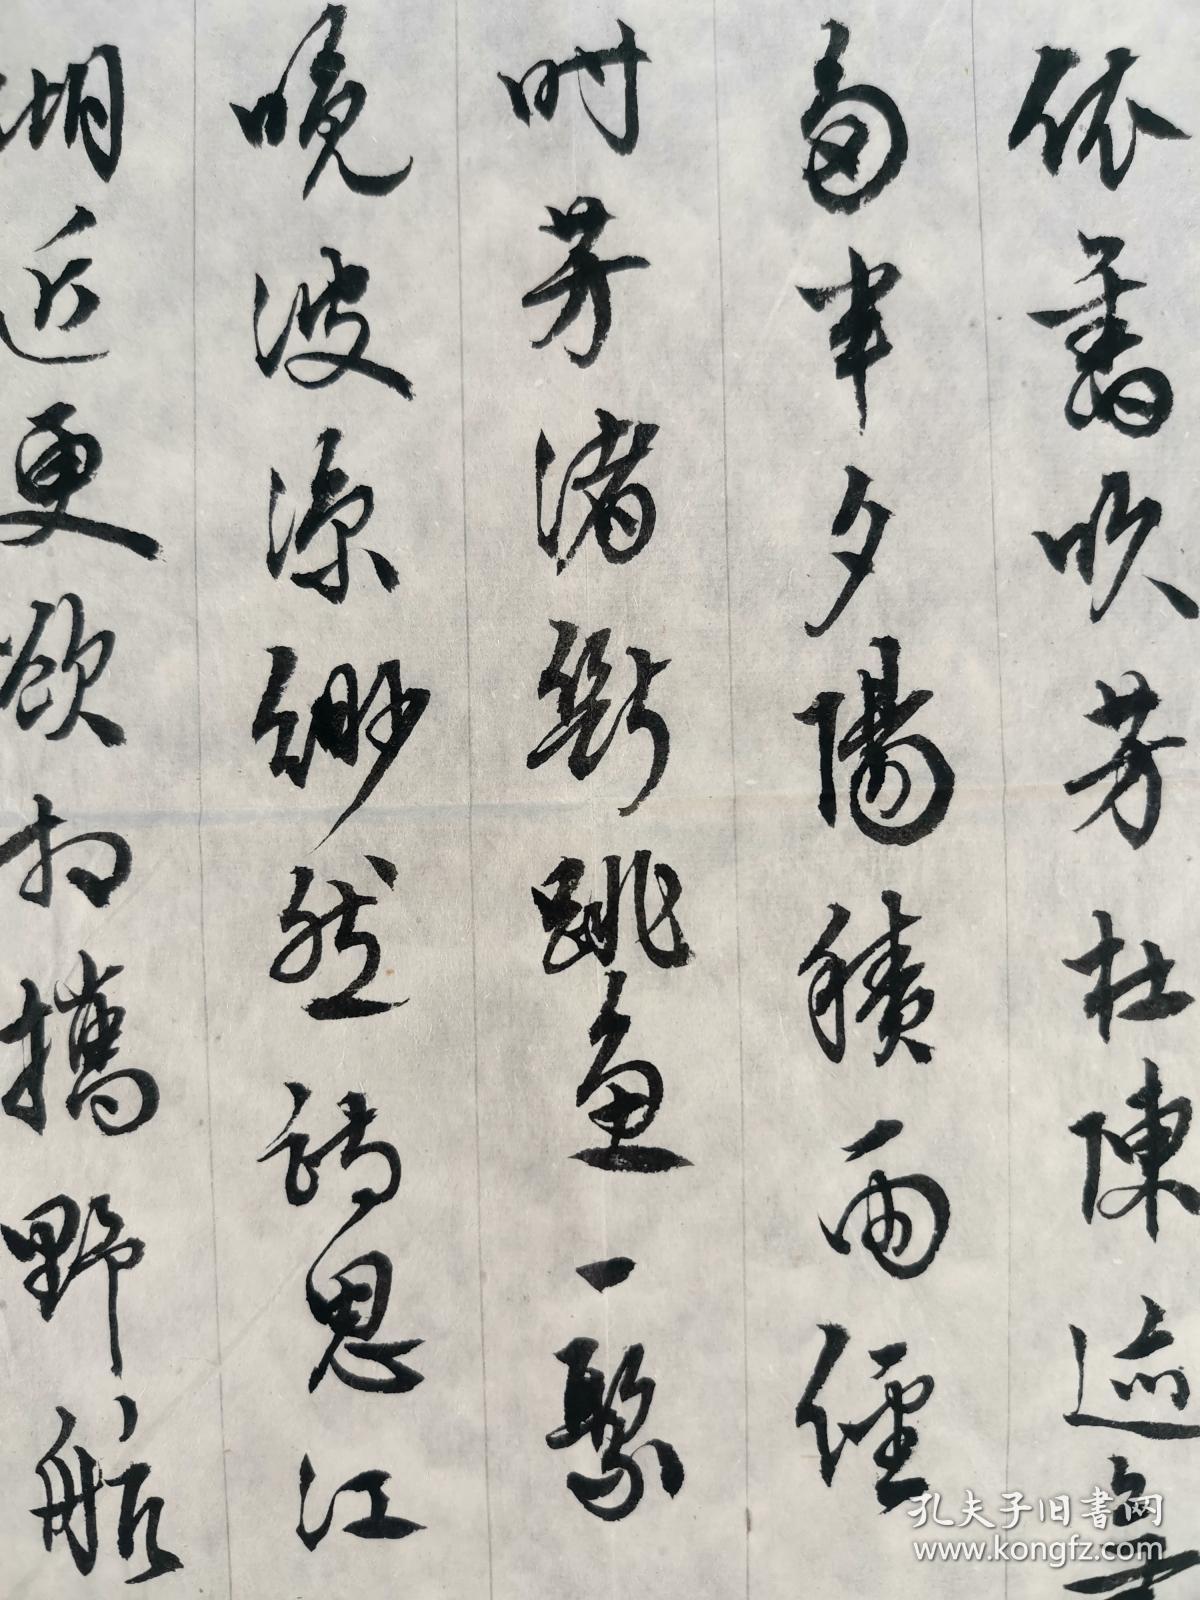 依舊吹芳杜陳迹無
多半夕陽積雨經
時芳渚斷跳魚一聚
晚波涼緲然詩思江
湖近更欲相攜野航
孔夫子旧書网
www.kongfz.com